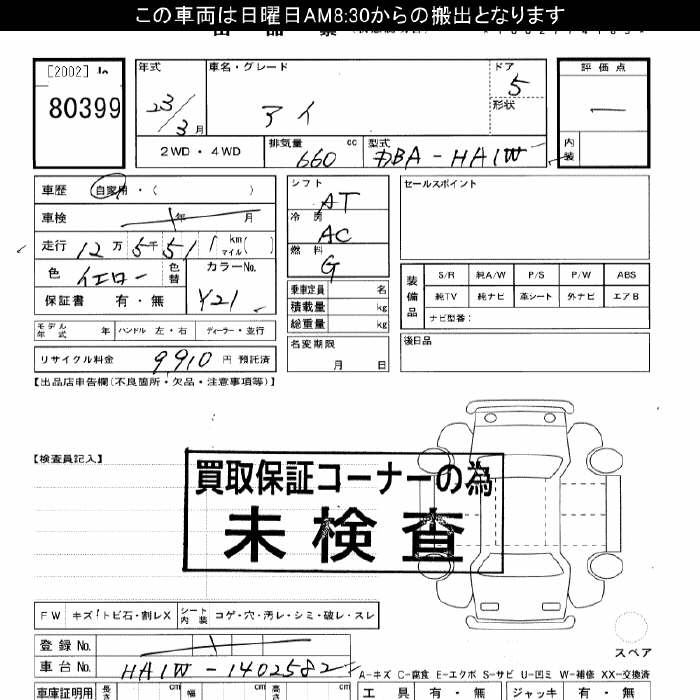 この車両は日曜日AM8:30からの搬出となります
[2002]
80399
年式
23/3月
車名・グレード
アイ
ドア
5
形状
評価点
内装
2WD・4WD
排気量
660cc
型式
DBA-HA1W
車歴
自家用・(　　　)
車検
年　月
走行
12万5千51
km
マイル
色
イエロー
色替
カラーNo.
Y21
保証書 有・無
シフト
AT
冷房
AC
燃料
G
乗車定員 名
積載量 kg
総重量 kg
名変期限
月 日
セールスポイント
装備品
S/R 純A/W P/S P/W ABS
純TV 純ナビ 革シート 外ナビ エアB
ナビ型番:
後日品
モデル年式 年 ハンドル 左・右 ディーラー・並行
リサイクル料金 9910円 預託済
【出品店申告欄(不良箇所・欠品・注意事項等)】
【検査員記入】
買取保証コーナーの為
未検査
FW キズ/トビ石・割レX シート内装 コゲ・穴・汚レ・シミ・破レ・スレ
スペア
登録No.
車台No. HA1W-1402582
A-キズ C-腐食 E-エクボ S-サビ U-凹ミ W-補修 XX-交換済
車庫証明用 長さ cm 幅 cm 高さ cm
工具 有・無 ジャッキ 有・無